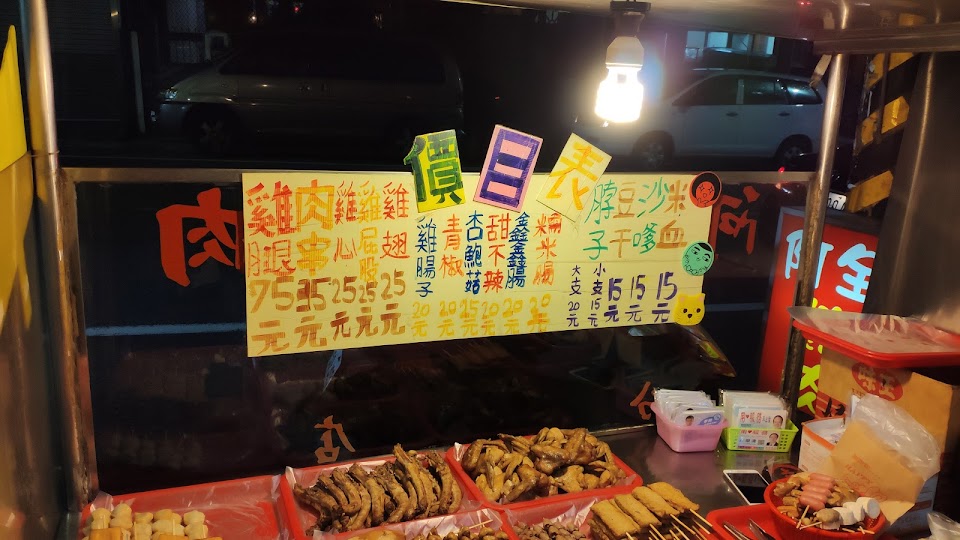 價目表
雞腿 75元
肉串 35元
雞心 25元
雞屁股 25元
雞翅 25元
雞腸子 20元
青椒 20元
杏鮑菇 25元
甜不辣 20元
鑫鑫腸 20元
糯米腸 20元
脖子 大支20元 小支15元
豆干 15元
沙嗲 15元
米血 15元
肉
店
分
阿
全